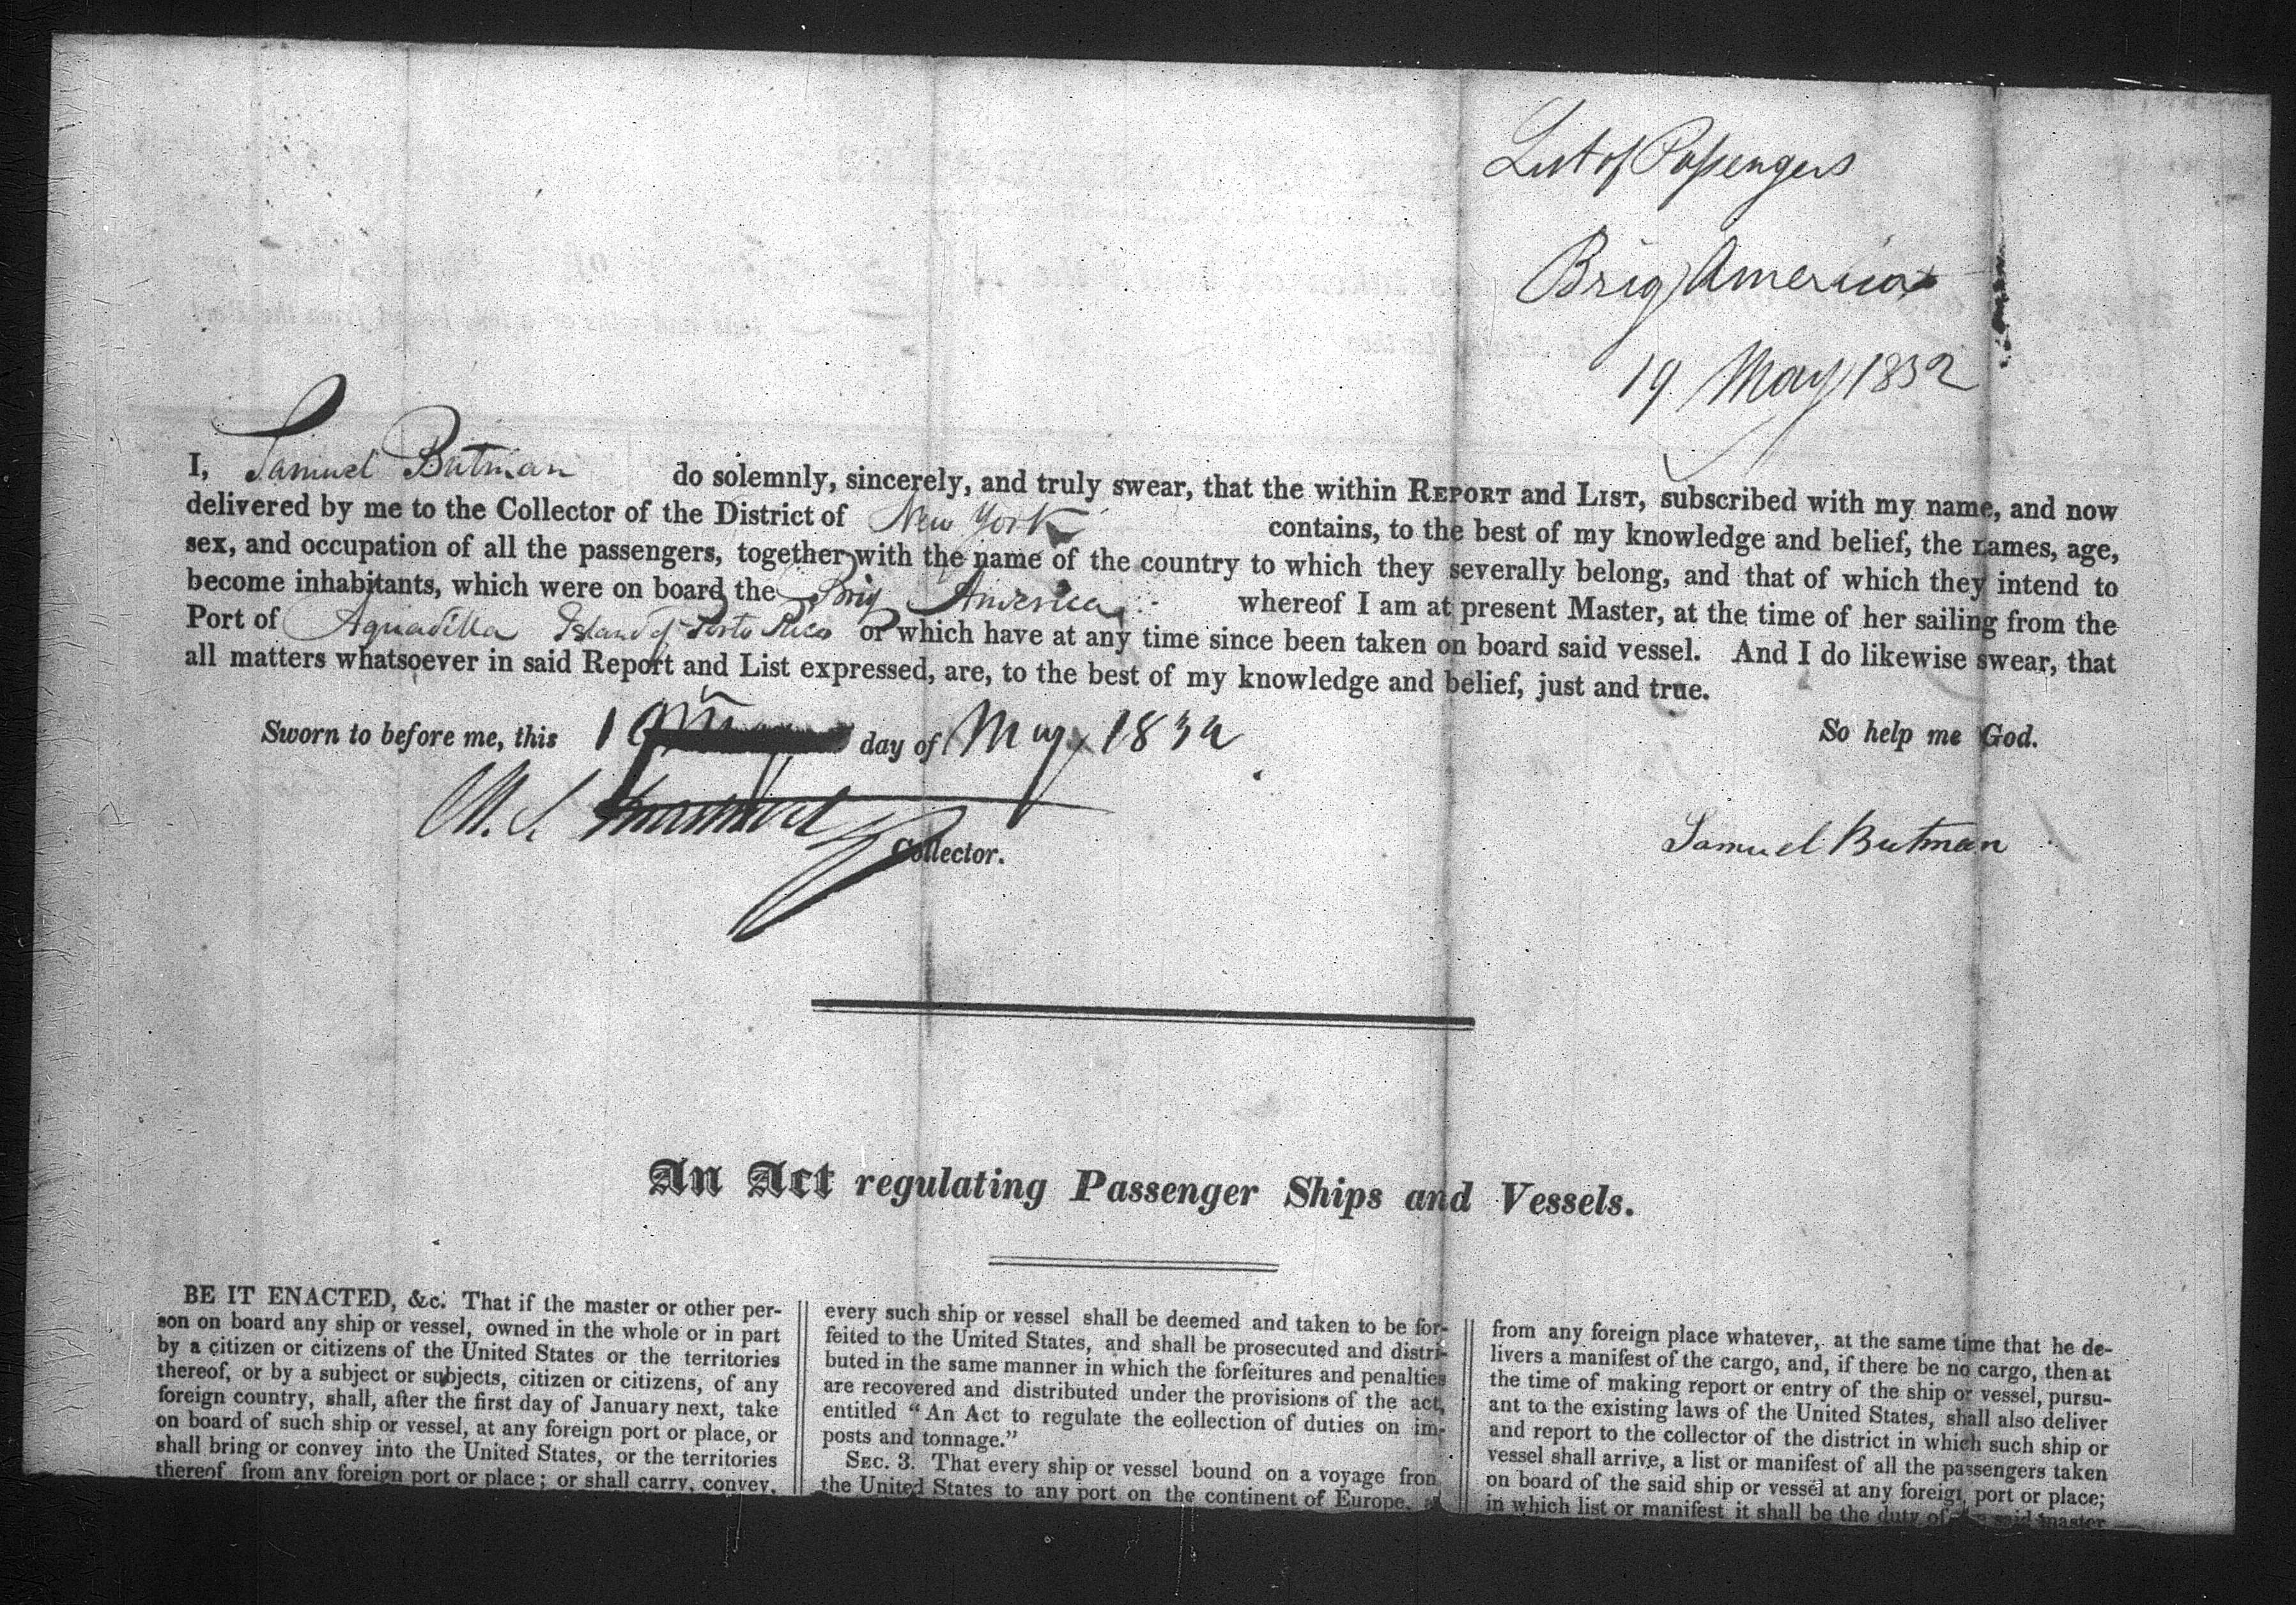 List of Passengers
Brig America
19 May 1832
I, Samuel Butman do solemnly, sincerely, and truly swear, that the within REPORT and LIST, subscribed with my name, and now
delivered by me to the Collector of the District of New York contains, to the best of my knowledge and belief, the names, age,
sex, and occupation of all the passengers, together with the name of the country to which they severally belong, and that of which they intend to
become inhabitants, which were on board the Brig America whereof I am at present Master, at the time of her sailing from the
Port of Aguadilla Island of Porto Rico or which have at any time since been taken on board said vessel. And I do likewise swear, that
all matters whatsoever in said Report and List expressed, are, to the best of my knowledge and belief, just and true.
So help me God.
Sworn to before me, this 19 day of May 1832
M. S.
Collector.
Samuel Butman
An Act regulating Passenger Ships and Vessels.
BE IT ENACTED, &c. That if the master or other per-
son on board any ship or vessel, owned in the whole or in part
by a citizen or citizens of the United States or the territories
thereof, or by a subject or subjects, citizen or citizens, of any
foreign country, shall, after the first day of January next, take
on board of such ship or vessel, at any foreign port or place, or
shall bring or convey into the United States, or the territories
thereof from any foreign port or place; or shall carry, convey,
every such ship or vessel shall be deemed and taken to be for-
feited to the United States, and shall be prosecuted and distri-
buted in the same manner in which the forfeitures and penalties
are recovered and distributed under the provisions of the act,
entitled "An Act to regulate the collection of duties on im-
posts and tonnage."
SEC. 3. That every ship or vessel bound on a voyage from
the United States to any port on the continent of Europe, a
from any foreign place whatever, at the same time that he de-
livers a manifest of the cargo, and, if there be no cargo, then at
the time of making report or entry of the ship or vessel, pursu-
ant to the existing laws of the United States, shall also deliver
and report to the collector of the district in which such ship or
vessel shall arrive, a list or manifest of all the passengers taken
on board of the said ship or vessel at any foreign port or place;
in which list or manifest it shall be the duty of the said master